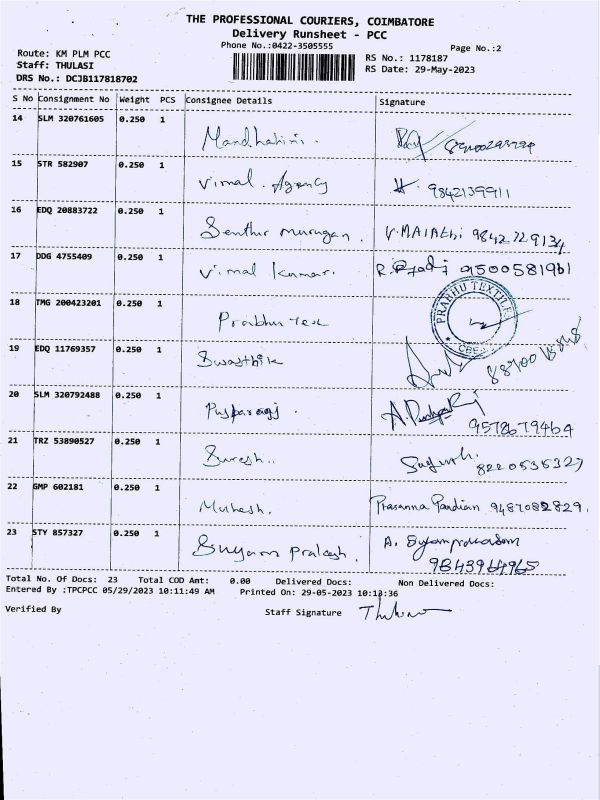 THE PROFESSIONAL COURIERS, COIMBATORE
Delivery Runsheet - PCC
Phone No.:0422-3505555
Page No.:2
Route: KM PLM PCC
RS No.: 1178187
Staff: THULASI
RS Date: 29-May-2023
DRS No.: DCJB117818702
S No Consignment No Weight PCS Consignee Details Signature
14 SLM 320761605 0.250 1
Mandhakini.
15 STR 582907 0.250 1
Vimal. Agency 9842139911
16 EDQ 20883722 0.250 1
Senthur murugan. V.MAlAthi 9842729134
17 DDG 4755409 0.250 1
Vimal kumar. 9500581961
18 TMG 200423201 0.250 1
Prabhu Tex
PRABHU TEXTILES
CBE
19 EDQ 11769357 0.250 1
Swasthik
20 SLM 320792488 0.250 1
Pusparaj. 9578679464
21 TRZ 53890527 0.250 1
Suresh. 8220535327
22 GMP 602181 0.250 1
Mukesh. Prasanna Pandian 9487082829.
23 STY 857327 0.250 1
Shyam Prakash. A.
9843964965
Total No. Of Docs: 23 Total COD Amt: 0.00 Delivered Docs: Non Delivered Docs:
Entered By :TPCPCC 05/29/2023 10:11:49 AM Printed On: 29-05-2023 10:13:36
Verified By Staff Signature